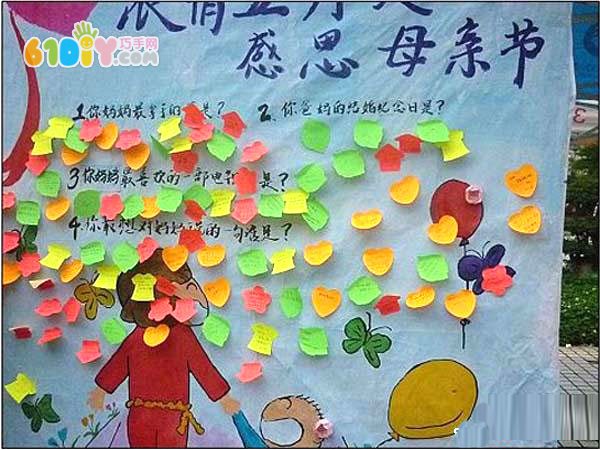 61DIY巧手网
情五月
感恩 母亲节
1.你妈妈最拿手的是?
2、你爸妈的结婚纪念日是?
3 你妈妈最喜欢的一部电是?
4.你最想对妈妈说的一句话是?